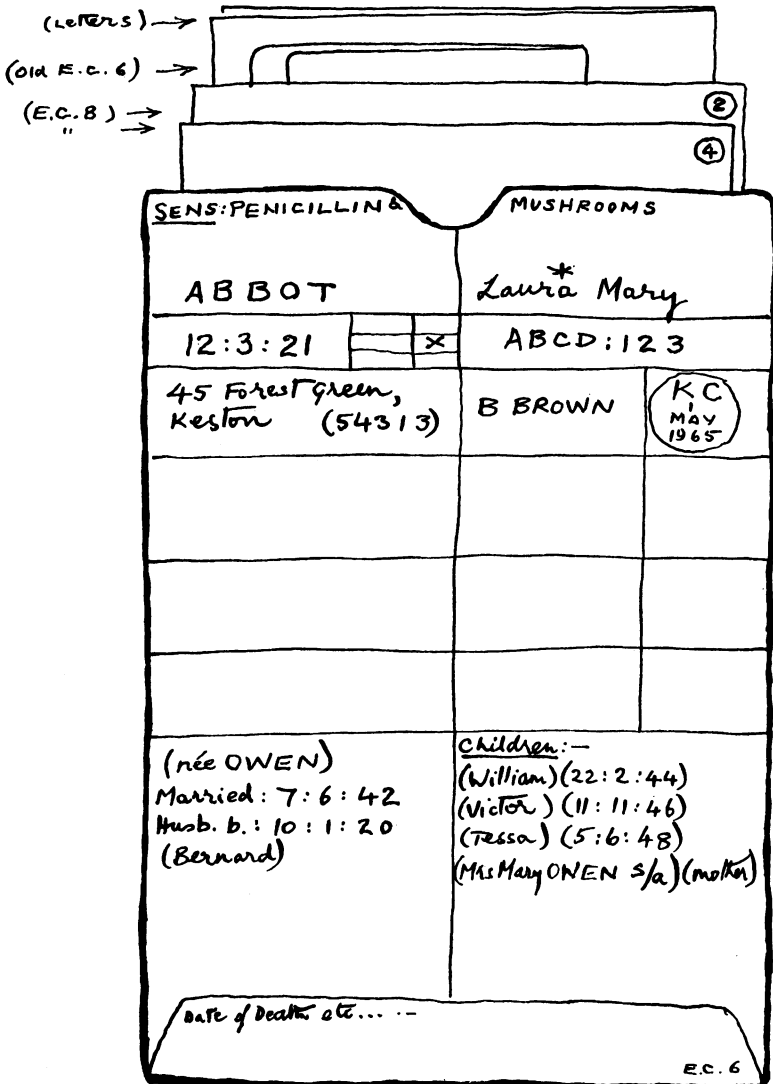 (Letters) →
(Old E.C.6) →
(E.C.8) →
" →
2
4
SENS: PENICILLIN & MUSHROOMS
ABBOT
*
Laura Mary
12:3:21 x ABCD:123
45 Forest Green,
Keston (54313)
B BROWN
KC
1
MAY
1965
(née OWEN)
Married: 7:6:42
Husb. b.: 10:1:20
(Bernard)
Children:—
(William) (22:2:44)
(Victor) (11:11:46)
(Tessa) (5:6:48)
(Mrs Mary OWEN s/a) (mother)
Date of Death etc... -
E.C.6